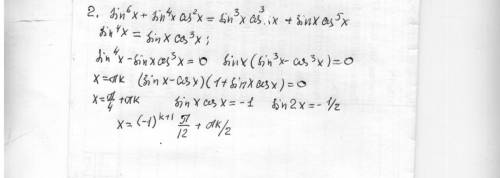 2. sin⁶x + sin⁴x cos²x = sin³x cos³x + sinx cos⁵x
sin⁴x = sinx cos³x;
sin⁴x - sinx cos³x = 0 sinx (sin³x - cos³x) = 0
x = πk (sinx - cosx)(1 + sinx cosx) = 0
x = π/4 + πk sinx cosx = -1 sin2x = -1/2
x = (-1)ᵏ⁺¹ π/12 + πk/2